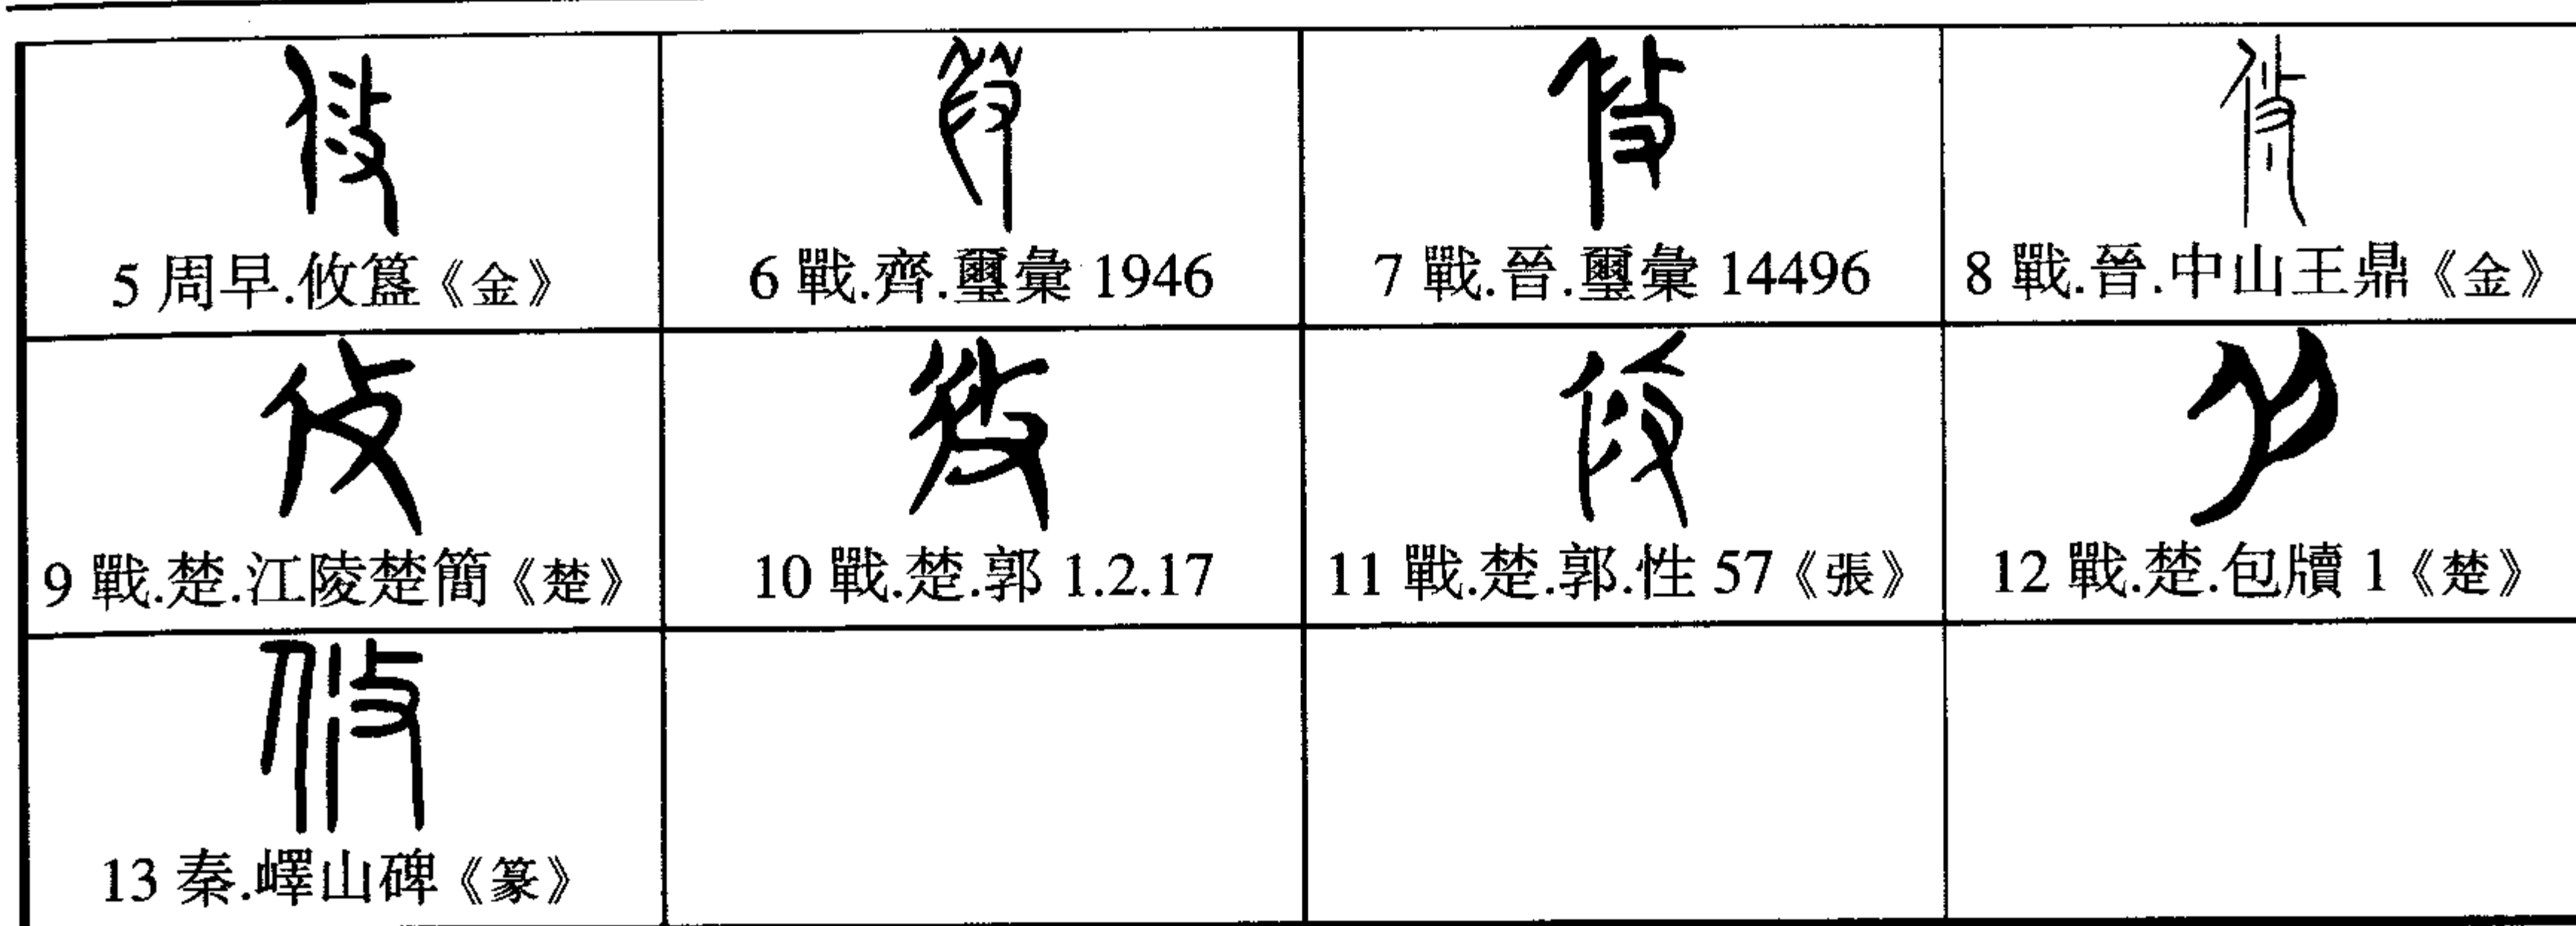 5 周早.攸簋《金》
6 戰.齊.璽彙 1946
7 戰.晉.璽彙 14496
8 戰.晉.中山王鼎《金》
9 戰.楚.江陵楚簡《楚》
10 戰.楚.郭 1.2.17
11 戰.楚.郭.性 57《張》
12 戰.楚.包牘 1《楚》
13 秦.嶧山碑《篆》